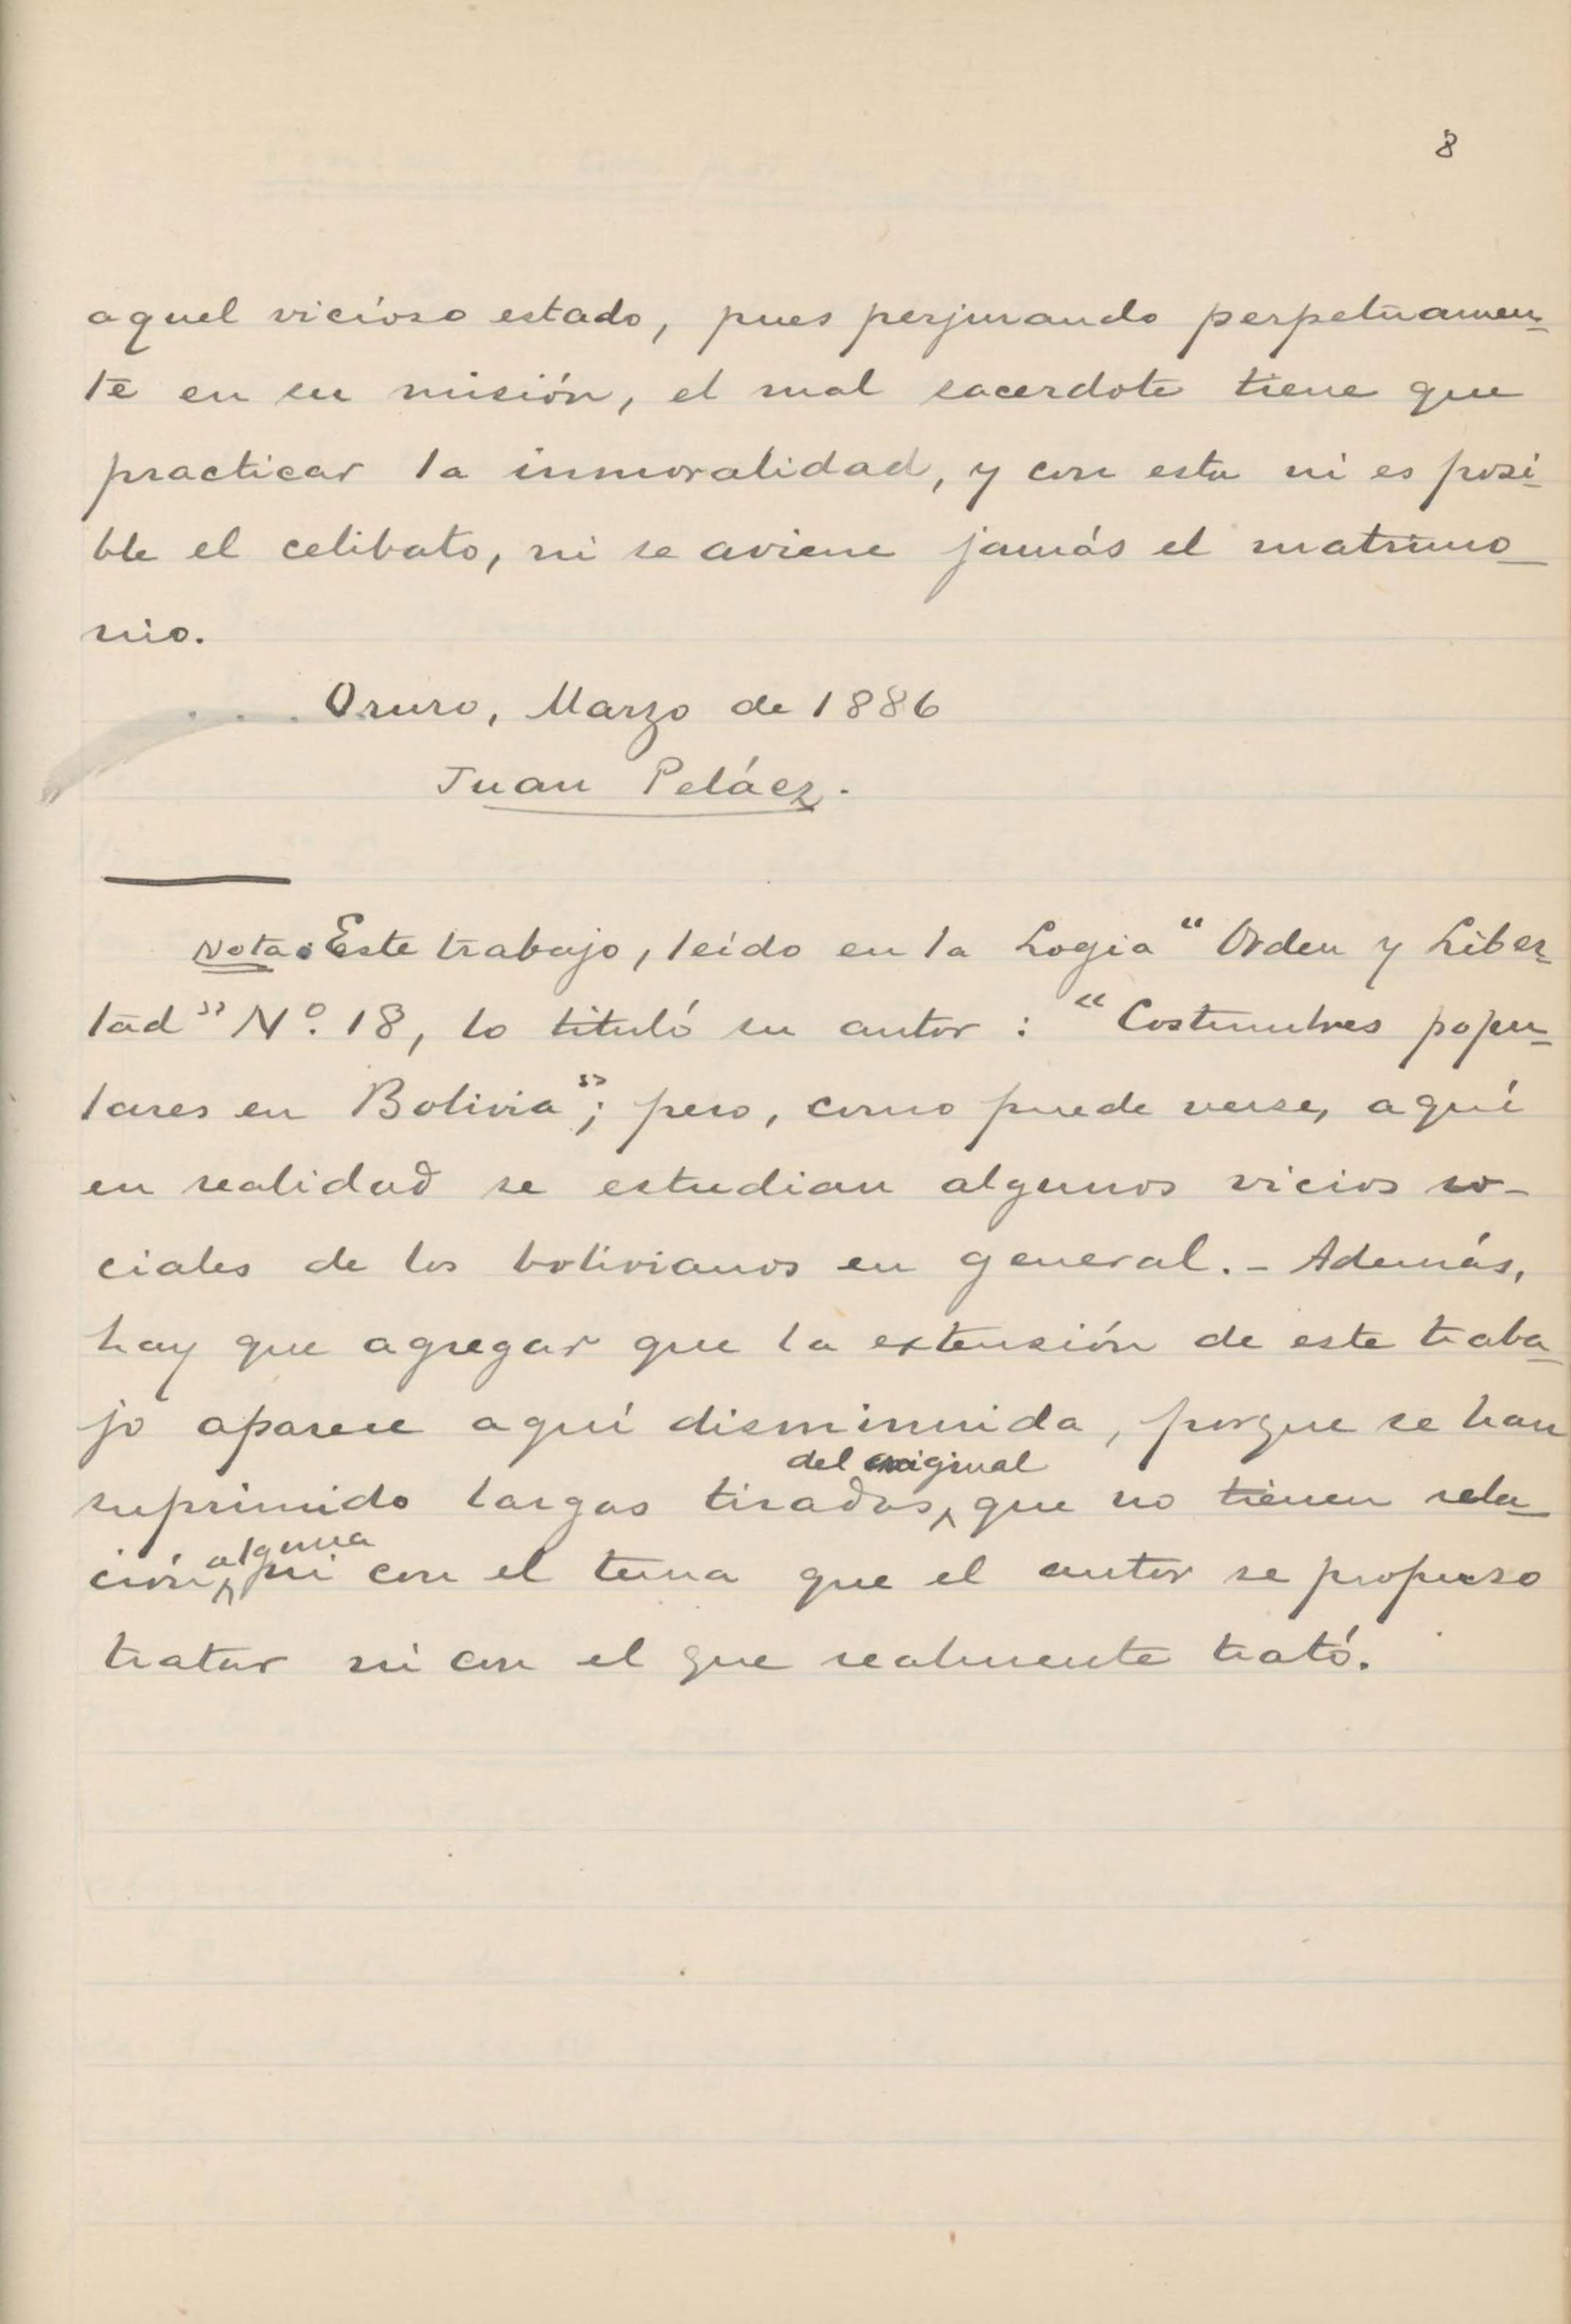 8
aquel vicioso estado, pues perjurando perpetuamen-
te en su misión, el mal sacerdote tiene que
practicar la inmoralidad, y con esta ni es posi-
ble el celibato, ni se aviene jamás el matrimo-
nio.
Oruro, Marzo de 1886
Juan Peláez.
Nota: Este trabajo, leído en la Logia "Orden y Liber-
tad" Nº. 18, lo tituló su autor: "Costumbres popu-
lares en Bolivia"; pero, como puede verse, aquí
en realidad se estudian algunos vicios so-
ciales de los bolivianos en general.- Además,
hay que agregar que la extensión de este traba-
jo aparece aquí disminuida, porque se han
del original
suprimido largas tiradas, que no tienen rela-
alguna
ción, ni con el tema que el autor se propuso
tratar ni con el que realmente trató.